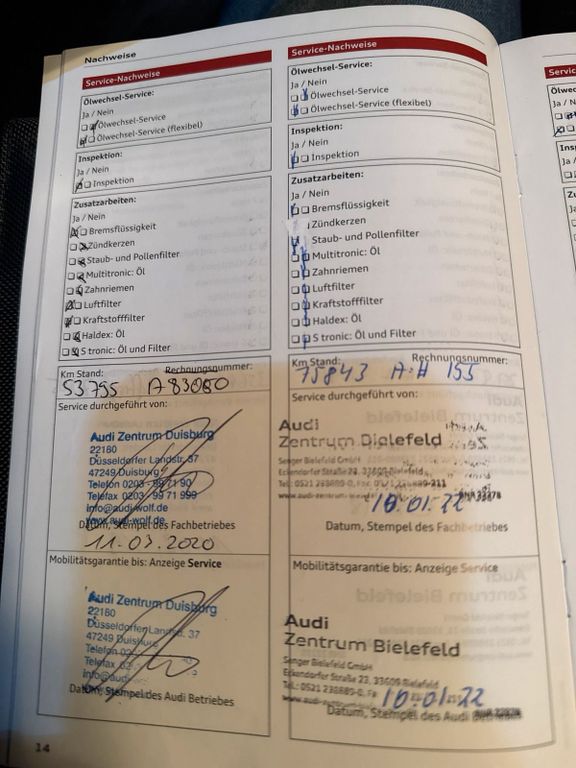 Nachweise
Service-Nachweise
Ölwechsel-Service:
Ja / Nein
Ölwechsel-Service
Ölwechsel-Service (flexibel)
Inspektion:
Ja / Nein
Inspektion
Zusatzarbeiten:
Ja / Nein
Bremsflüssigkeit
Zündkerzen
Staub- und Pollenfilter
Multitronic: Öl
Zahnriemen
Luftfilter
Kraftstofffilter
Haldex: Öl
S tronic: Öl und Filter
Km Stand: Rechnungsnummer:
53.795 A83080
Service durchgeführt von:
Audi Zentrum Duisburg
22180
Düsseldorfer Landstr. 37
47249 Duisburg
Telefon 0203 - 99 71 90
Telefax 0203 - 99 71 999
info@audi-wolf.de
www.audi-wolf.de
Datum, Stempel des Fachbetriebes
11.03.2020
Mobilitätsgarantie bis: Anzeige Service
Audi Zentrum Duisburg
22180
Düsseldorfer Landstr. 37
47249 Duisburg
Telefon 02
Telefax 02
info@audi
Datum, Stempel des Audi Betriebes
14
Service-Nachweise
Ölwechsel-Service:
Ja / Nein
Ölwechsel-Service
Ölwechsel-Service (flexibel)
Inspektion:
Ja / Nein
Inspektion
Zusatzarbeiten:
Ja / Nein
Bremsflüssigkeit
Zündkerzen
Staub- und Pollenfilter
Multitronic: Öl
Zahnriemen
Luftfilter
Kraftstofffilter
Haldex: Öl
S tronic: Öl und Filter
Km Stand: Rechnungsnummer:
75843 155
Service durchgeführt von:
Audi
Zentrum Bielefeld
Senger Bielefeld GmbH
Eckendorfer Straße 23, 33609 Bielefeld
10.01.22
Datum, Stempel des Fachbetriebes
Mobilitätsgarantie bis: Anzeige Service
Audi
Zentrum Bielefeld
Senger Bielefeld GmbH
Eckendorfer Straße 23, 33609 Bielefeld
10.01.22
Datum, Stempel des Audi